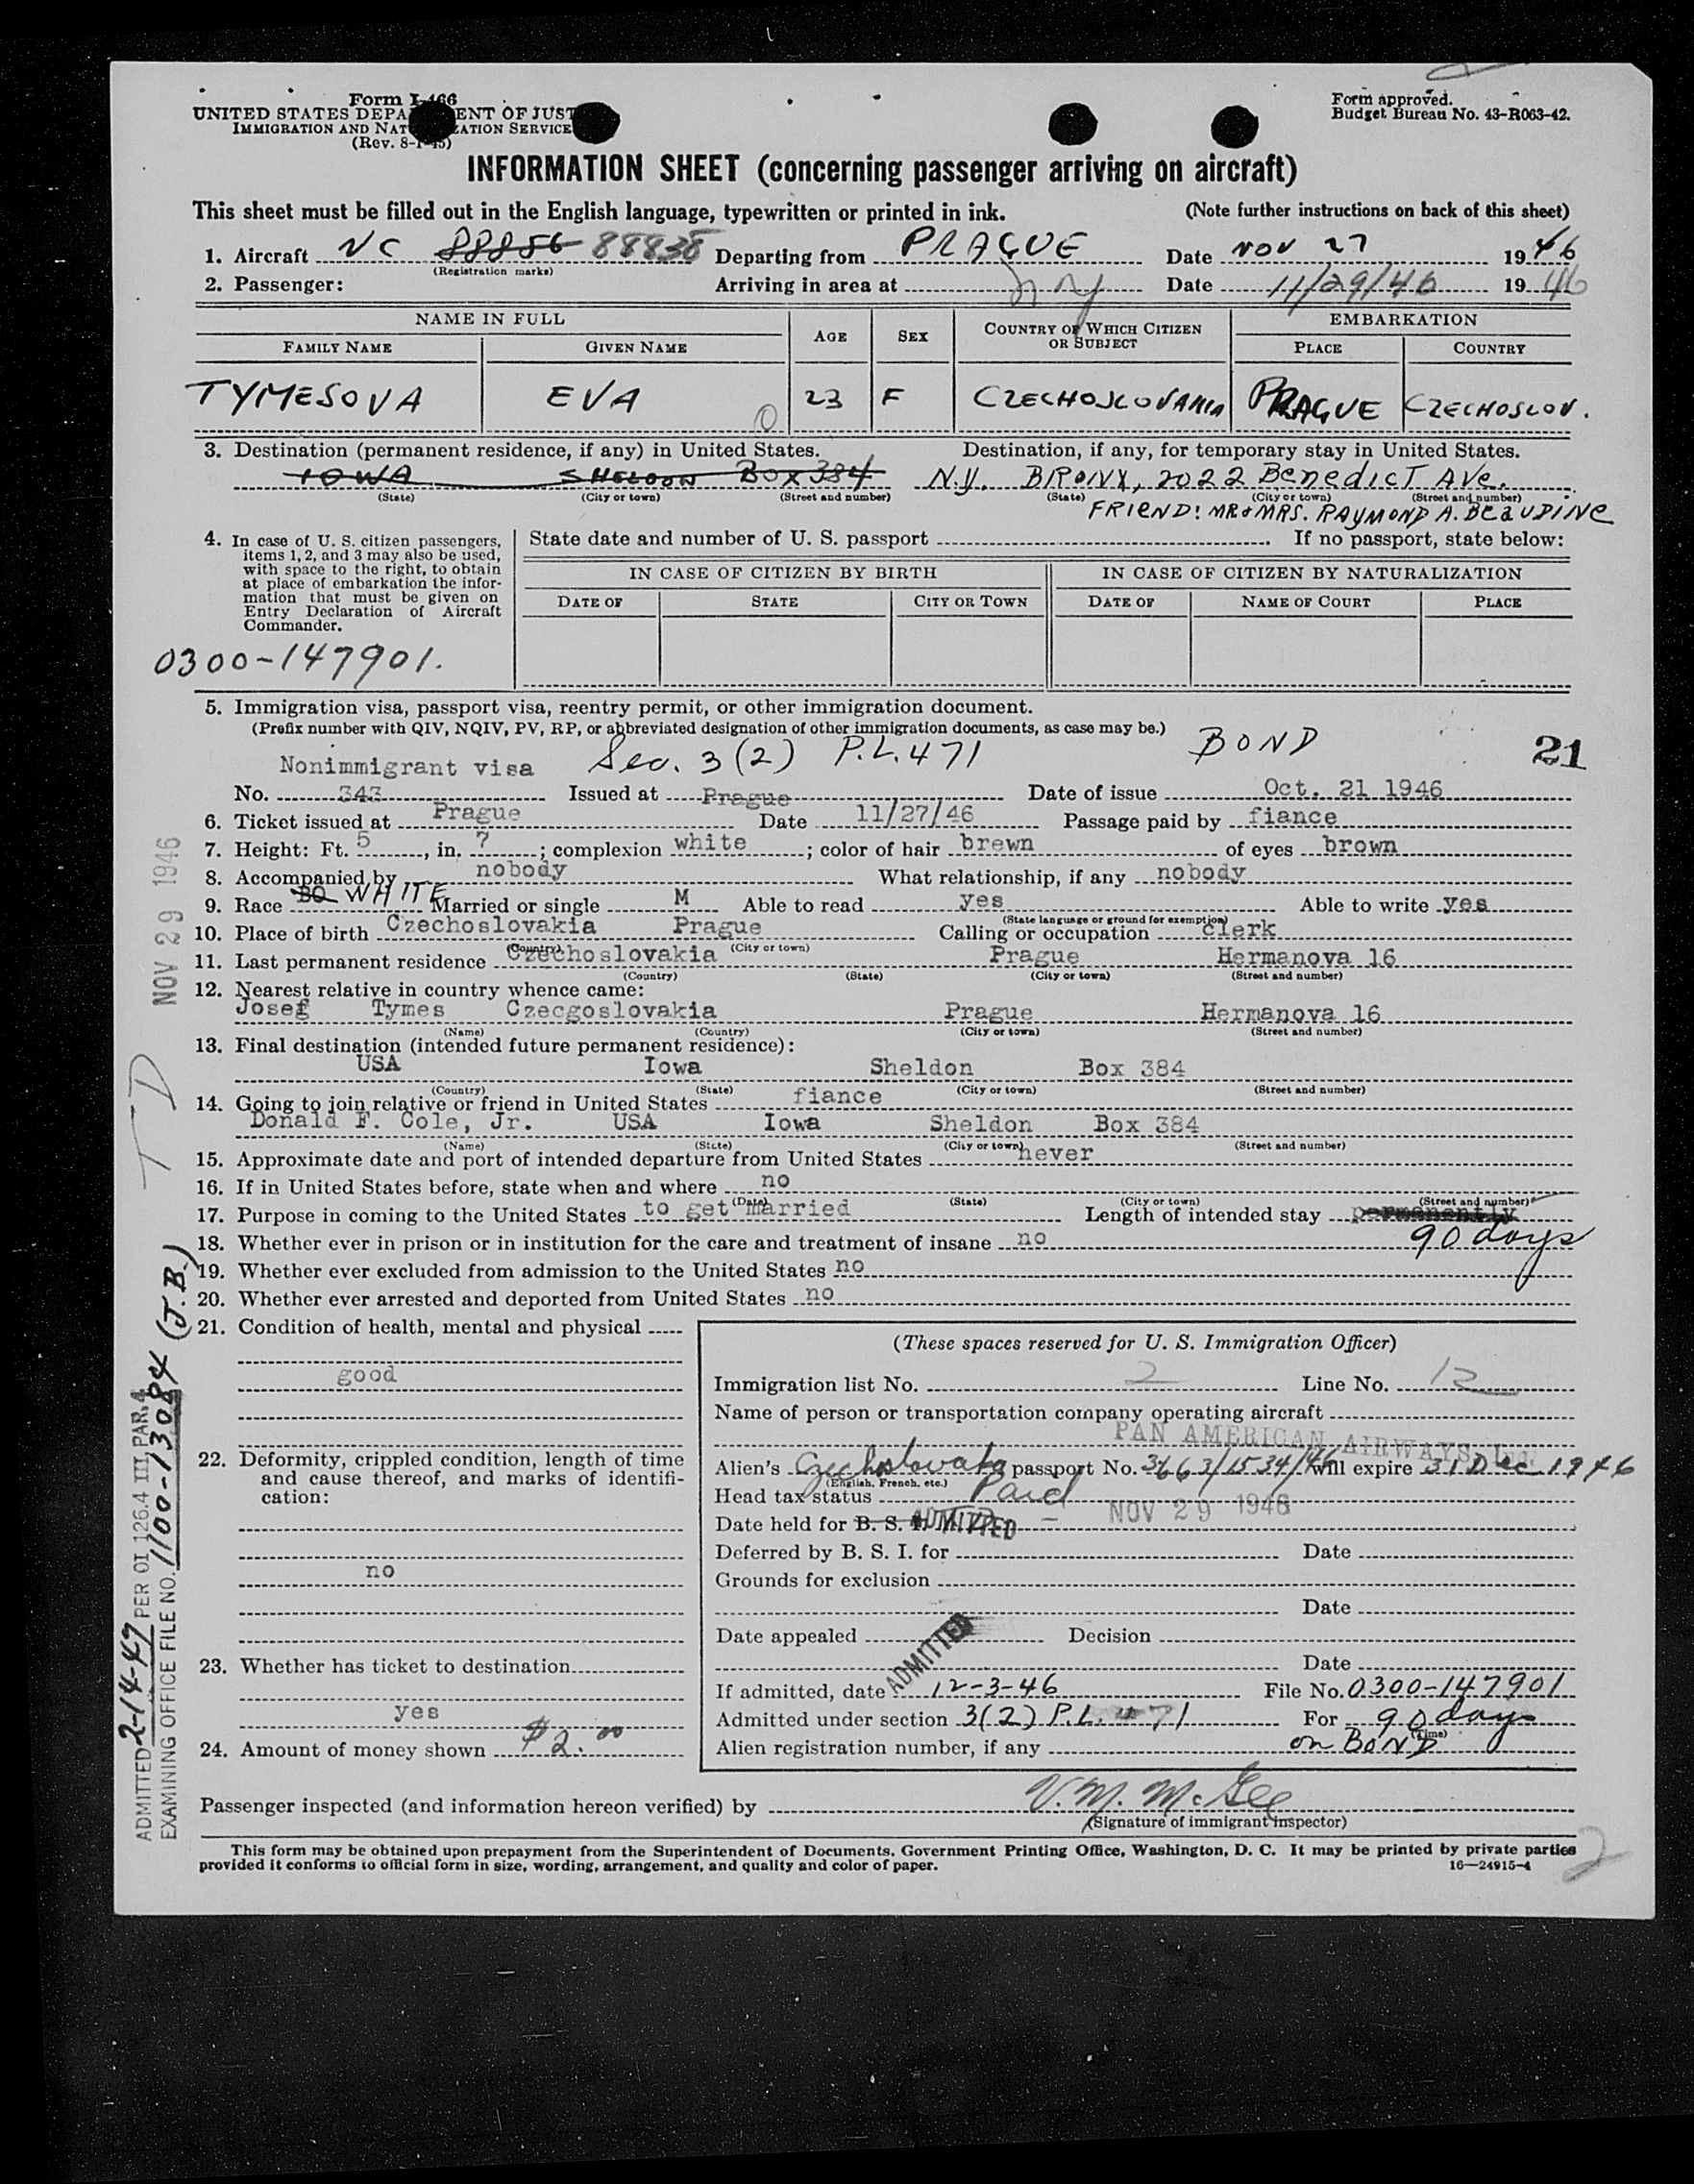 Form I-466
UNITED STATES DEPARTMENT OF JUSTICE
IMMIGRATION AND NATURALIZATION SERVICE
(Rev. 8-1-45)
Form approved.
Budget Bureau No. 43-R063-42.
INFORMATION SHEET (concerning passenger arriving on aircraft)
This sheet must be filled out in the English language, typewritten or printed in ink. (Note further instructions on back of this sheet)
1. Aircraft NC 88856 88838 Departing from PRAGUE Date NOV 27 1946
(Registration marks)
2. Passenger: Arriving in area at N Y Date 11/29/46 1946
NAME IN FULL AGE SEX COUNTRY OF WHICH CITIZEN OR SUBJECT EMBARKATION
FAMILY NAME GIVEN NAME PLACE COUNTRY
TYMESOVA EVA 23 F CZECHOSLOVAKIA PRAGUE CZECHOSLOV.
3. Destination (permanent residence, if any) in United States. Destination, if any, for temporary stay in United States.
IOWA SHELDON BOX 384 N.Y. BRONX, 2022 Benedict Ave.
(State) (City or town) (Street and number) (State) (City or town) (Street and number)
FRIEND: MR & MRS. RAYMOND A. BEAUDINE
4. In case of U. S. citizen passengers, items 1, 2, and 3 may also be used, with space to the right, to obtain at place of embarkation the information that must be given on Entry Declaration of Aircraft Commander.
State date and number of U. S. passport If no passport, state below:
IN CASE OF CITIZEN BY BIRTH IN CASE OF CITIZEN BY NATURALIZATION
DATE OF STATE CITY OR TOWN DATE OF NAME OF COURT PLACE
0300-147901.
5. Immigration visa, passport visa, reentry permit, or other immigration document.
(Prefix number with QIV, NQIV, PV, RP, or abbreviated designation of other immigration documents, as case may be.) BOND
Nonimmigrant visa Sec. 3 (2) P.L. 471 21
No. 343 Issued at Prague Date of issue Oct. 21 1946
6. Ticket issued at Prague Date 11/27/46 Passage paid by fiance
7. Height: Ft. 5, in. 7; complexion white; color of hair brewn of eyes brown
8. Accompanied by nobody What relationship, if any nobody
9. Race WHITE Married or single M Able to read yes Able to write yes
(State language or ground for exemption)
10. Place of birth Czechoslovakia Prague Calling or occupation clerk
(Country) (City or town)
11. Last permanent residence Czechoslovakia Prague Hermanova 16
(Country) (State) (City or town) (Street and number)
12. Nearest relative in country whence came:
Josef Tymes Czecgoslovakia Prague Hermanova 16
(Name) (Country) (City or town) (Street and number)
13. Final destination (intended future permanent residence):
USA Iowa Sheldon Box 384
(Country) (State) (City or town) (Street and number)
14. Going to join relative or friend in United States fiance
Donald F. Cole, Jr. USA Iowa Sheldon Box 384
(Name) (State) (City or town) (Street and number)
15. Approximate date and port of intended departure from United States never
16. If in United States before, state when and where no
(Date) (State) (City or town) (Street and number)
17. Purpose in coming to the United States to get married Length of intended stay permanently
18. Whether ever in prison or in institution for the care and treatment of insane no 90 days
19. Whether ever excluded from admission to the United States no
20. Whether ever arrested and deported from United States no
21. Condition of health, mental and physical
good
22. Deformity, crippled condition, length of time and cause thereof, and marks of identification:
no
23. Whether has ticket to destination
yes
24. Amount of money shown $2.00
(These spaces reserved for U. S. Immigration Officer)
Immigration list No. 2 Line No. 12
Name of person or transportation company operating aircraft
PAN AMERICAN AIRWAYS, Inc
Alien's Czechoslovak passport No. 3663/1534/46 will expire 31 Dec 1946
(English, French, etc.)
Head tax status Paid
Date held for B. S. I. ADMITTED NOV 29 1946
Deferred by B. S. I. for Date
Grounds for exclusion
Date
Date appealed Decision
ADMITTED
Date
If admitted, date 12-3-46 File No. 0300-147901
Admitted under section 3(2) P.L. 471 For 90 days
(Time)
Alien registration number, if any on BOND
Passenger inspected (and information hereon verified) by V. M. McGee
(Signature of immigrant inspector)
This form may be obtained upon prepayment from the Superintendent of Documents, Government Printing Office, Washington, D. C. It may be printed by private parties
provided it conforms to official form in size, wording, arrangement, and quality and color of paper. 16—24915-4
2
NOV 29 1946
T D
ADMITTED 2-14-47 PER OI 126.4 III PAR. 4
EXAMINING OFFICE FILE NO. 1100-13084 (J.B.)